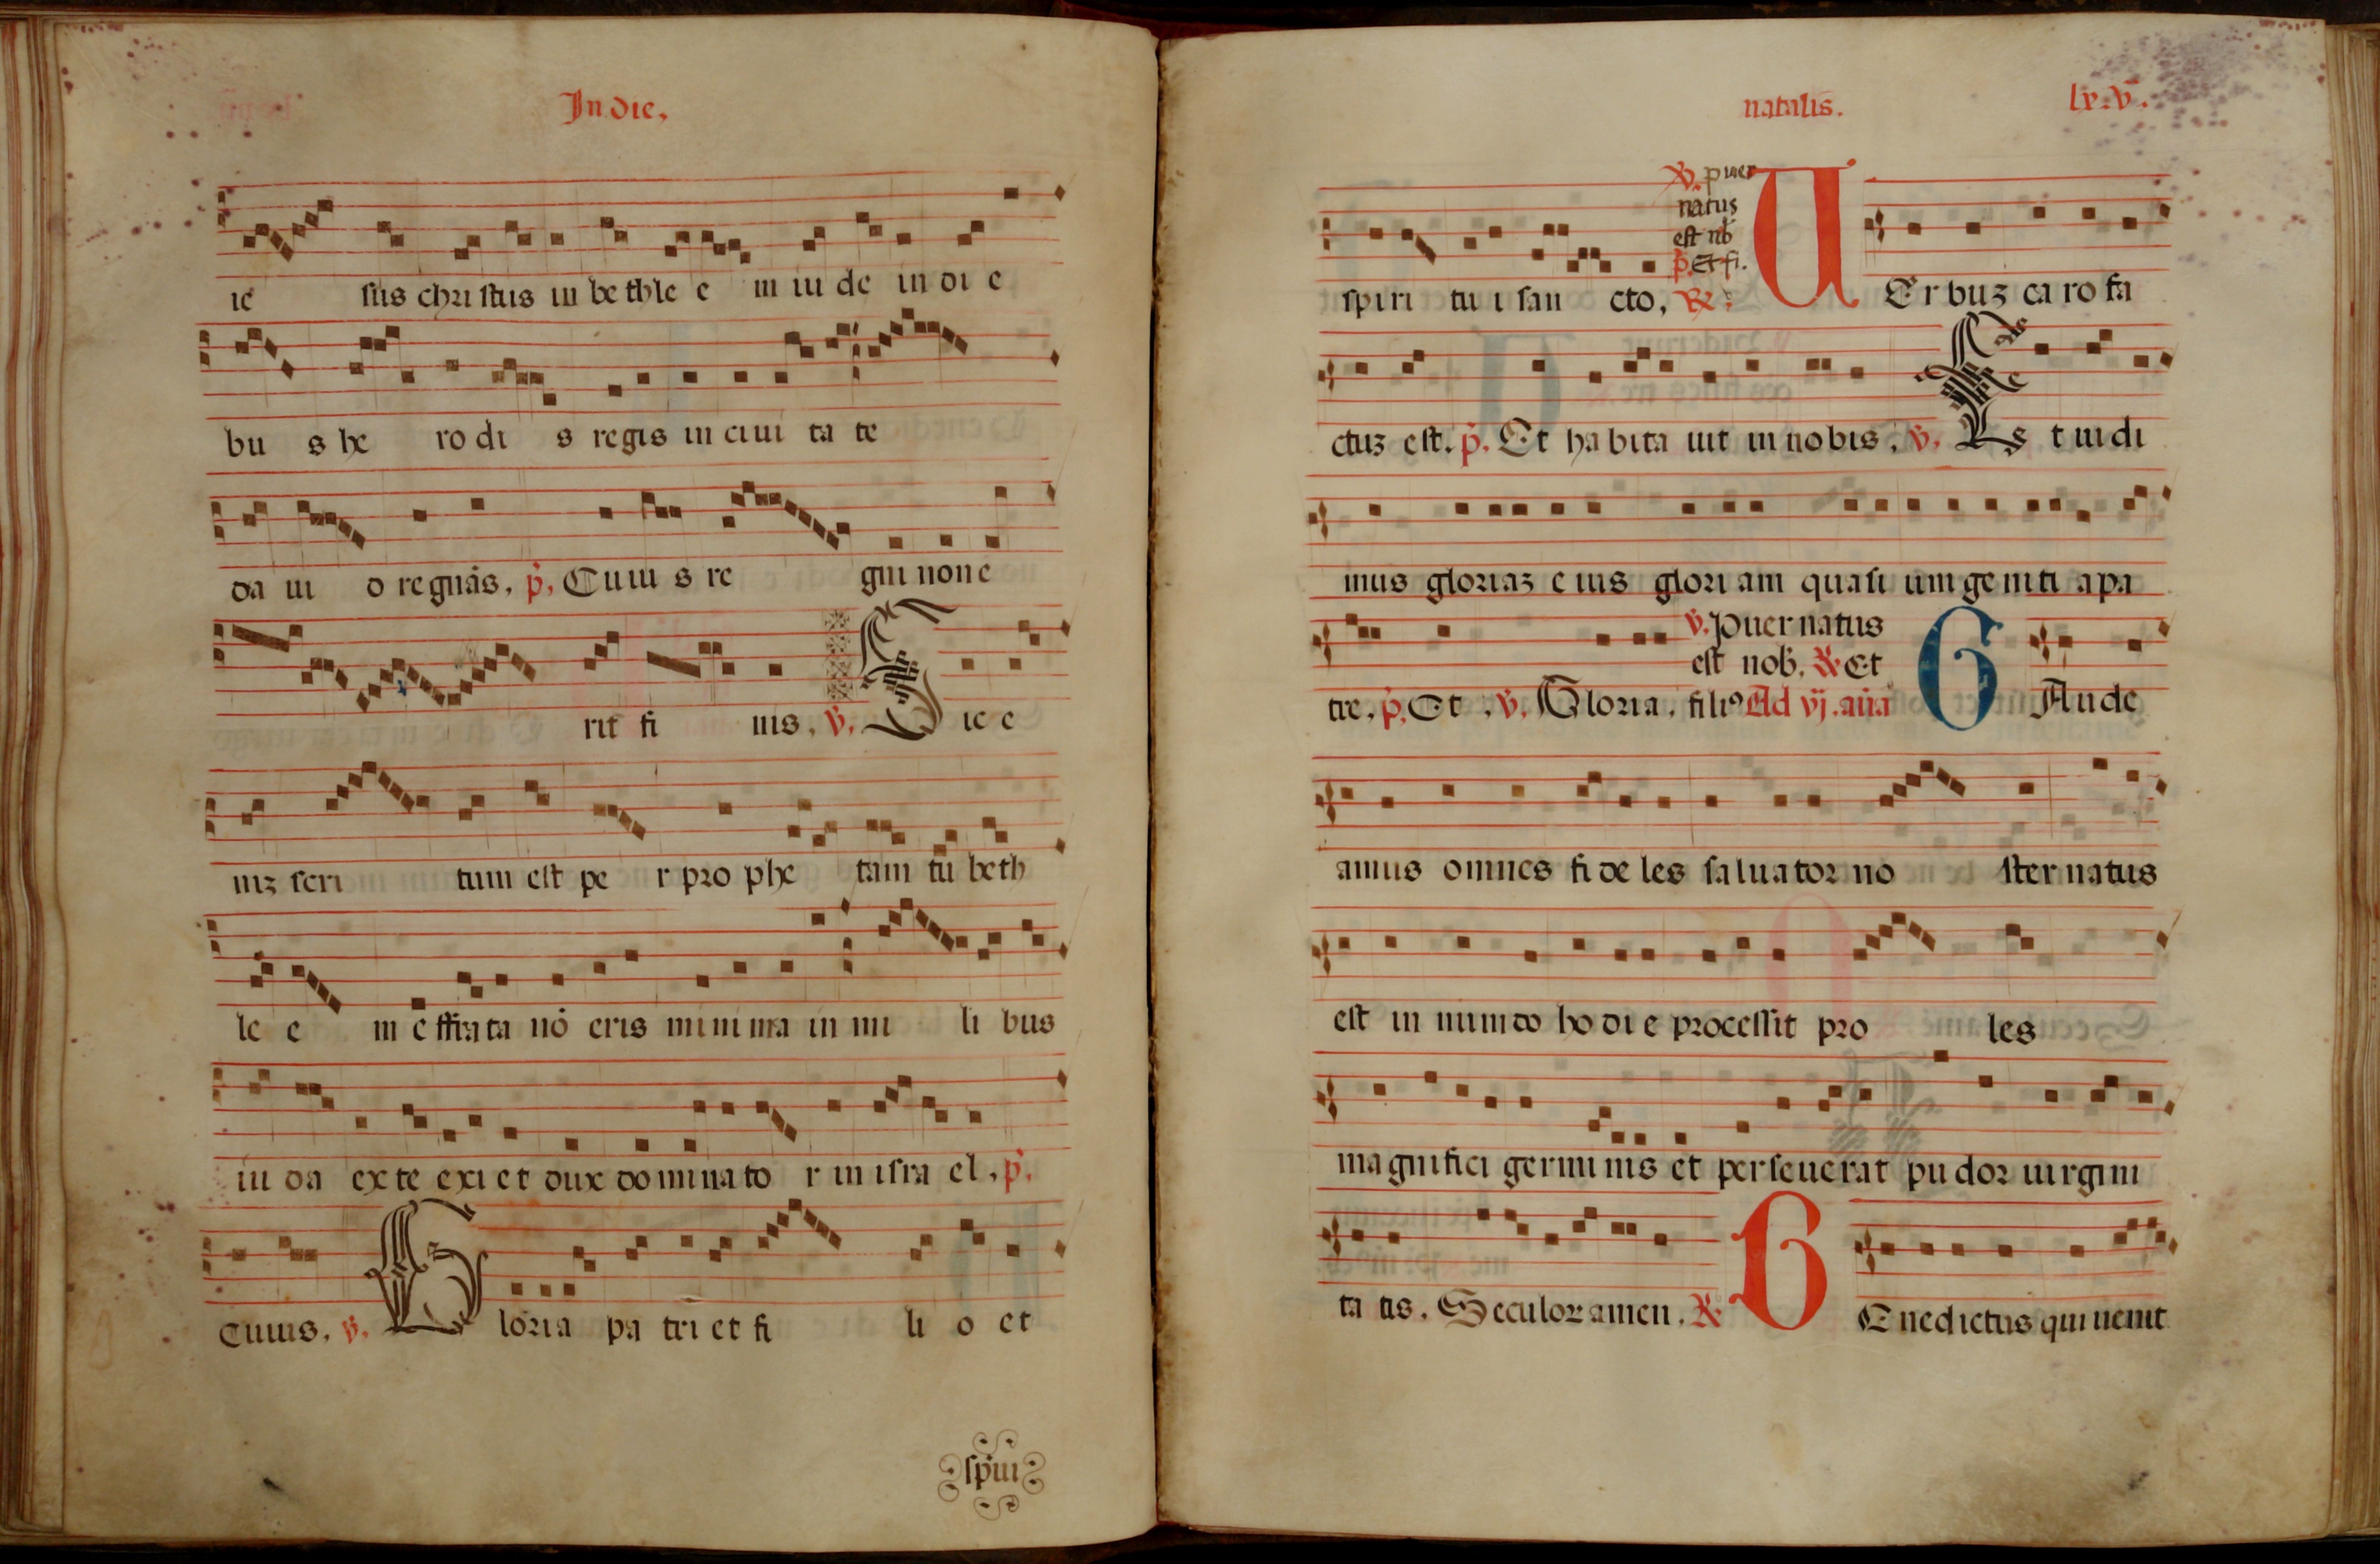 In die,
ie sus christus in be thle e m iu de in di e
bu s he ro di s regis in ciui ta te
da ui d regnās, p̄, Cuiu s re gni non e
rit fi nis, v̄. Sic e
niʒ scri tum est pe r pro phe tam tu beth
le e m effrata nō eris mini ma in mi li bus
iu da ex te exi et dux domina to r in isra el, p̄.
Cuius. v̄. Gloria pa tri et fi li o et
spiri
natalis. lx.v.
v̄. puer
natus
est nb̄
p̄. Et fi.
spiri tu i san cto, R̄. UErbuʒ caro fa
ctuʒ est. p̄. Et habita uit in nobis. v̄. Et uidi
mus gloriaʒ eius gloriam quasi unigeniti a pa
v̄. Puer natus
est nob̄. R̄ Et
tre. p̄. Et . v̄. Gloria. filiꝰ Ad vj. an̄a GAude
amus omnes fideles saluator no ster natus
est in mundo hodie processit pro les
magnifici germinis et perseuerat pudor uirgini
ta tis. Seculoꝝ amen. R̄ BEnedictus qui uenit